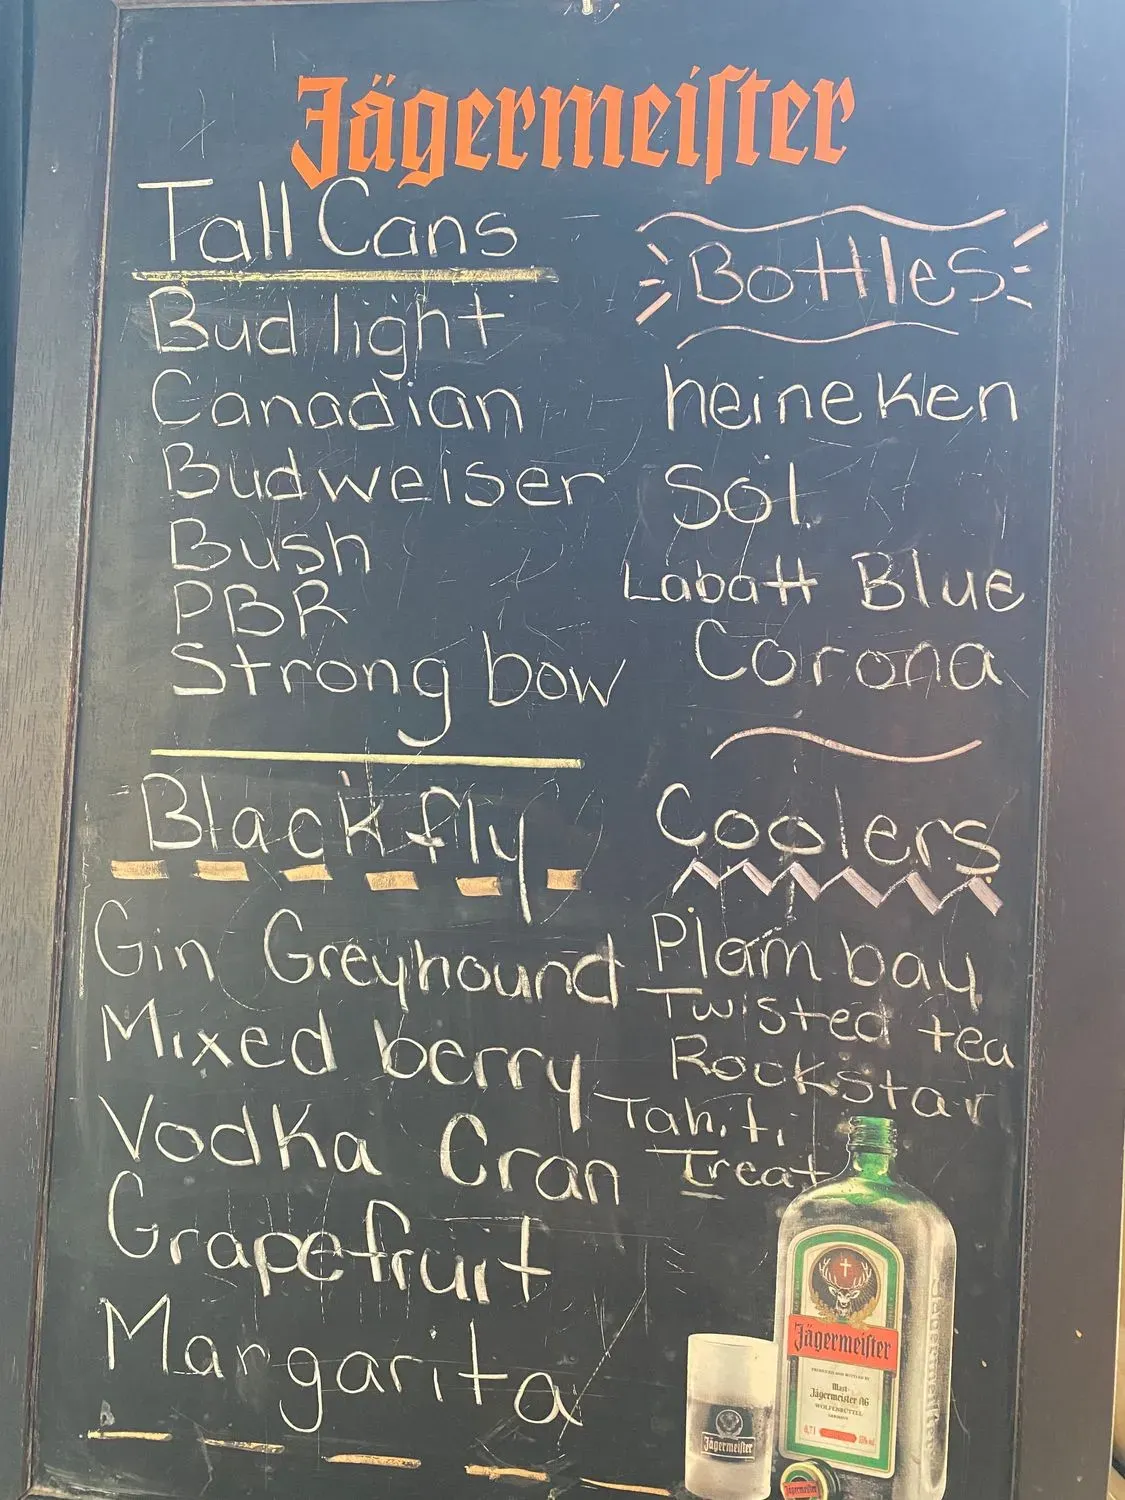 Jägermeister
Tall Cans
Bud light
Canadian
Budweiser
Bush
PBR
Strongbow
Bottles
heineken
Sol
Labatt Blue
Corona
Blackfly
Gin Greyhound
Mixed berry
Vodka Cran
Grapefruit
Margarita
Coolers
Plam bay
Twisted tea
Rockstar
Tahiti
Treat
Jägermeister
Mast-
Jägermeister AG
WOLFENBÜTTEL
GERMANY
Jägermeister
Jägermeister